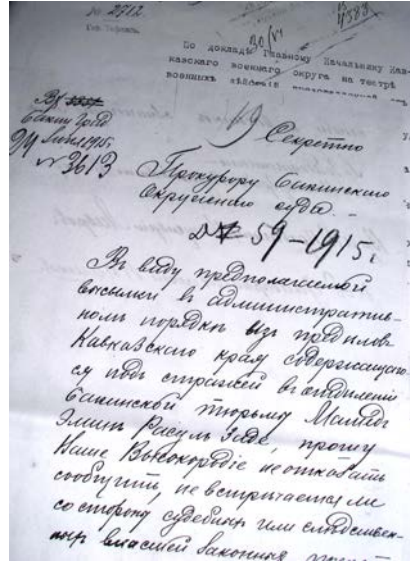 № 2712
По докладу Главному Начальнику Кав-
казскаго военнаго округа на театрѣ
военныхъ дѣйствій
30/VI
4388
19
Секретно
1915 г.
№ 3613
Прокурору Бакинскаго
Окружнаго суда.
59-1915 г.
Въ виду предполагаемой
высылки въ административ-
номъ порядкѣ изъ предѣловъ
Кавказскаго края содержащаго-
ся подъ стражей въ отдѣленіи
Бакинской тюрьмы Мамедъ
Эминъ Расулъ Заде, прошу
Ваше Высокородіе не отказать
сообщить, не встрѣчается ли
со стороны судебныхъ или слѣдствен-
ныхъ властей законныхъ